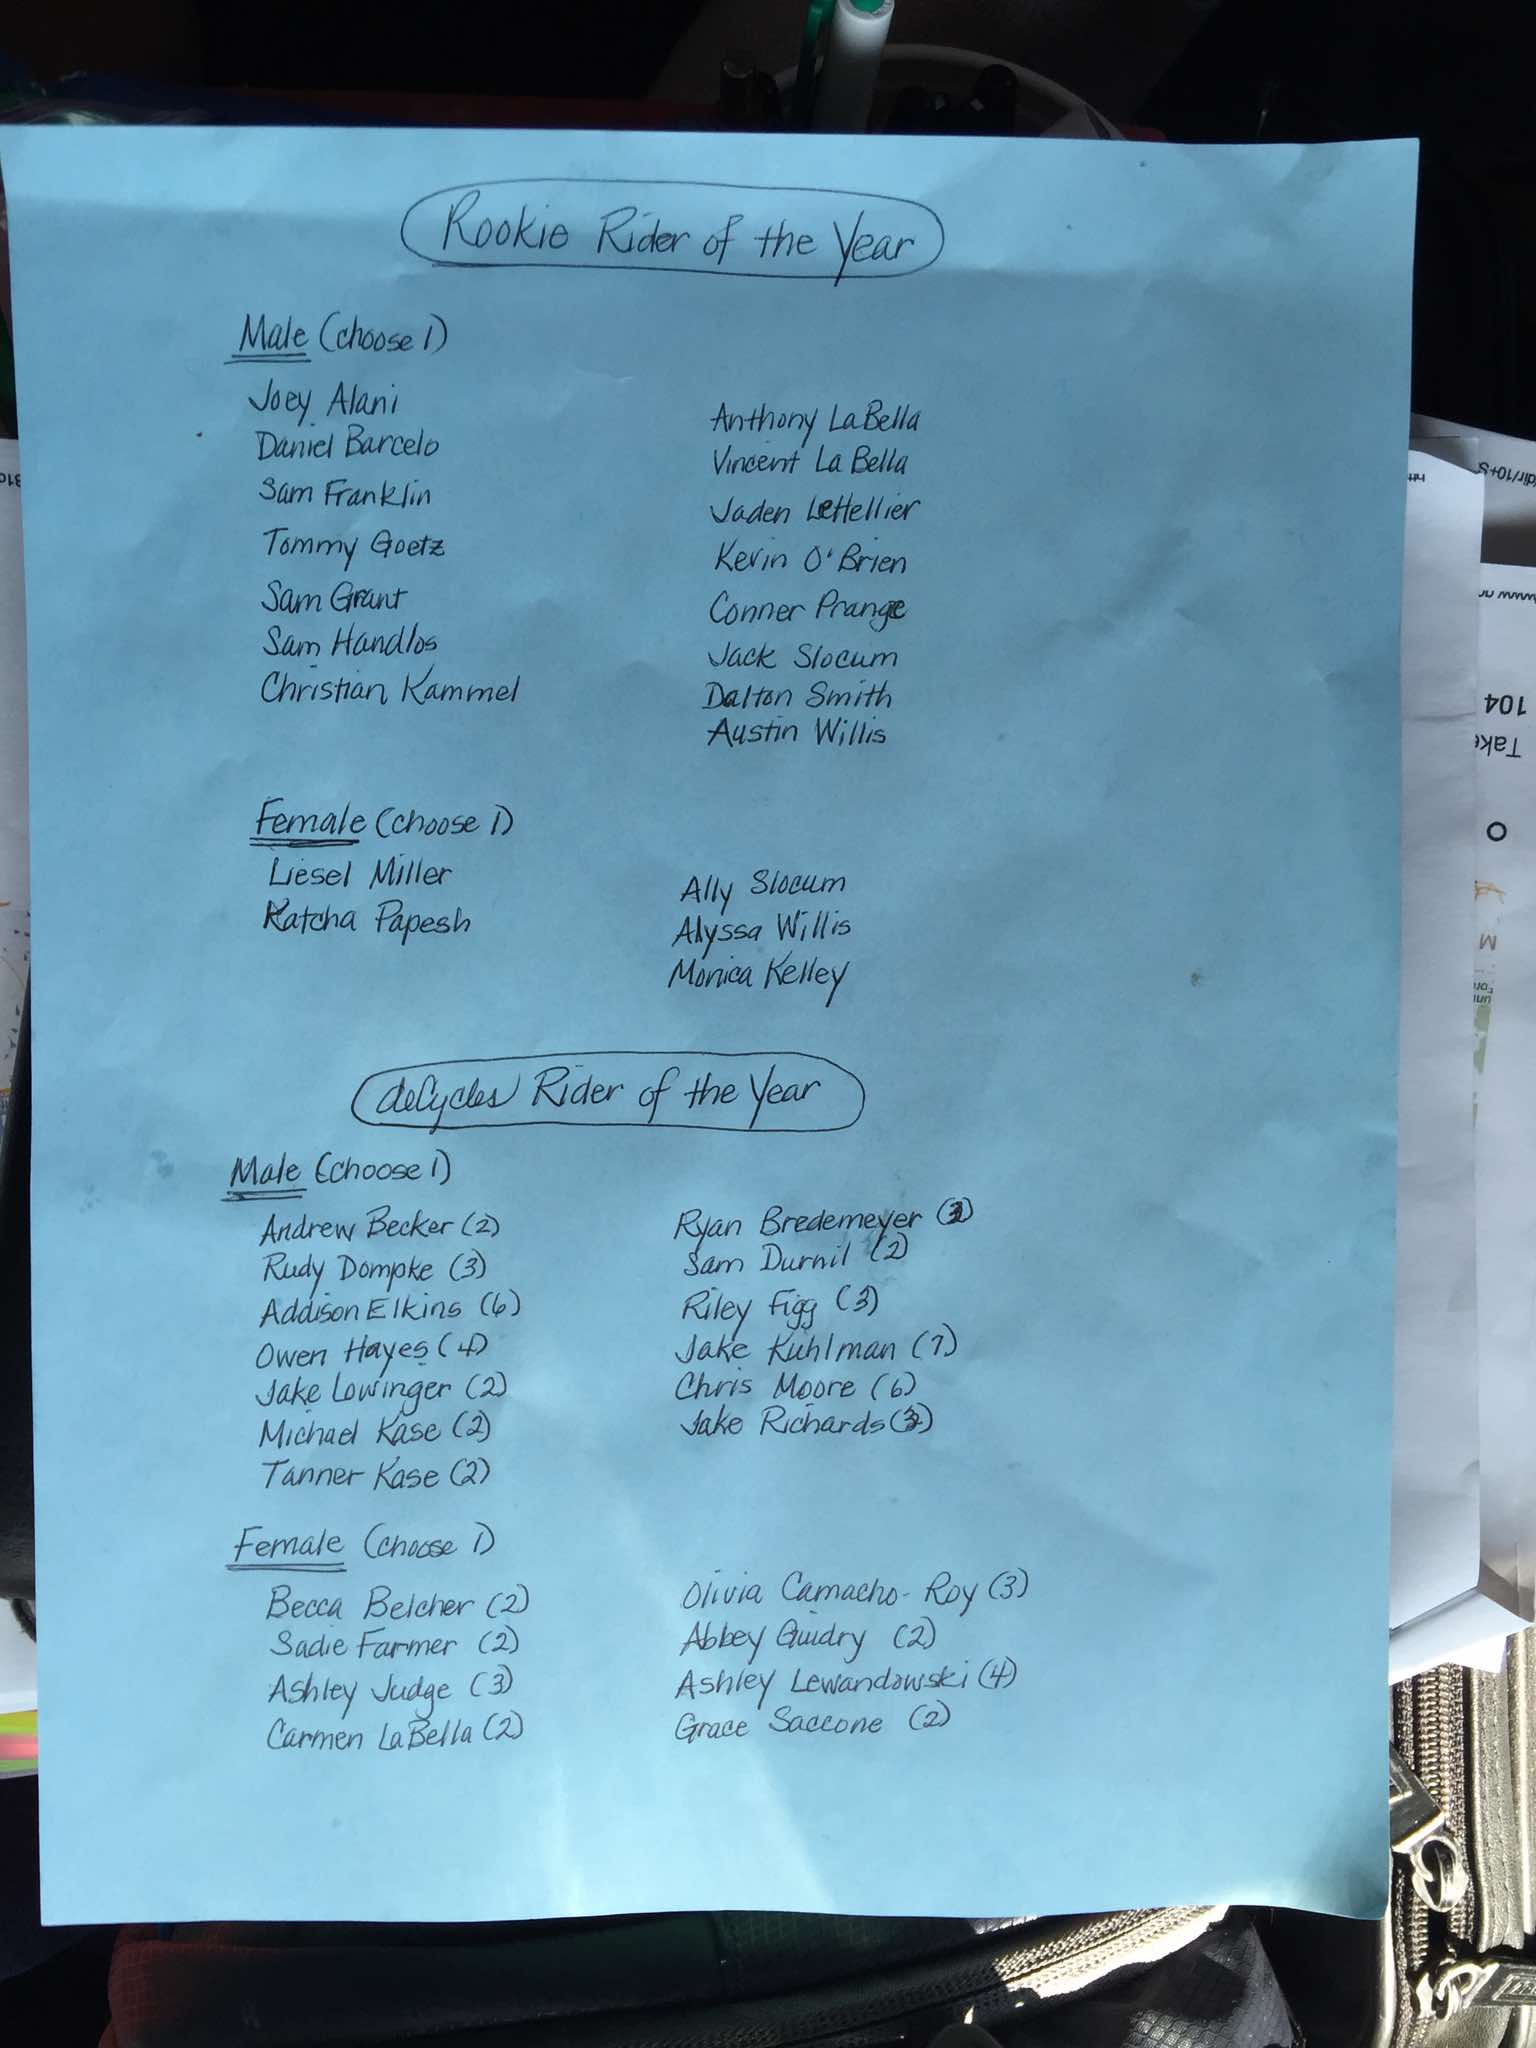 Rookie Rider of the Year
Male (choose 1)
Joey Alani
Daniel Barcelo
Sam Franklin
Tommy Goetz
Sam Grant
Sam Handlos
Christian Kammel
Anthony LaBella
Vincent LaBella
Jaden LeHellier
Kevin O'Brien
Conner Prange
Jack Slocum
Dalton Smith
Austin Willis
Female (choose 1)
Liesel Miller
Katcha Papesh
Ally Slocum
Alyssa Willis
Monica Kelley
deCycles Rider of the Year
Male (choose 1)
Andrew Becker (2)
Rudy Dompke (3)
Addison Elkins (6)
Owen Hayes (4)
Jake Lowinger (2)
Michael Kase (2)
Tanner Kase (2)
Ryan Bredemeyer
Sam Durnil (2)
Riley Figg (3)
Jake Kuhlman (7)
Chris Moore (6)
Jake Richards
Female (choose 1)
Becca Belcher (2)
Sadie Farmer (2)
Ashley Judge (3)
Carmen LaBella (2)
Olivia Camacho-Roy (3)
Abbey Guidry (2)
Ashley Lewandowski (4)
Grace Saccone (2)
104
Take